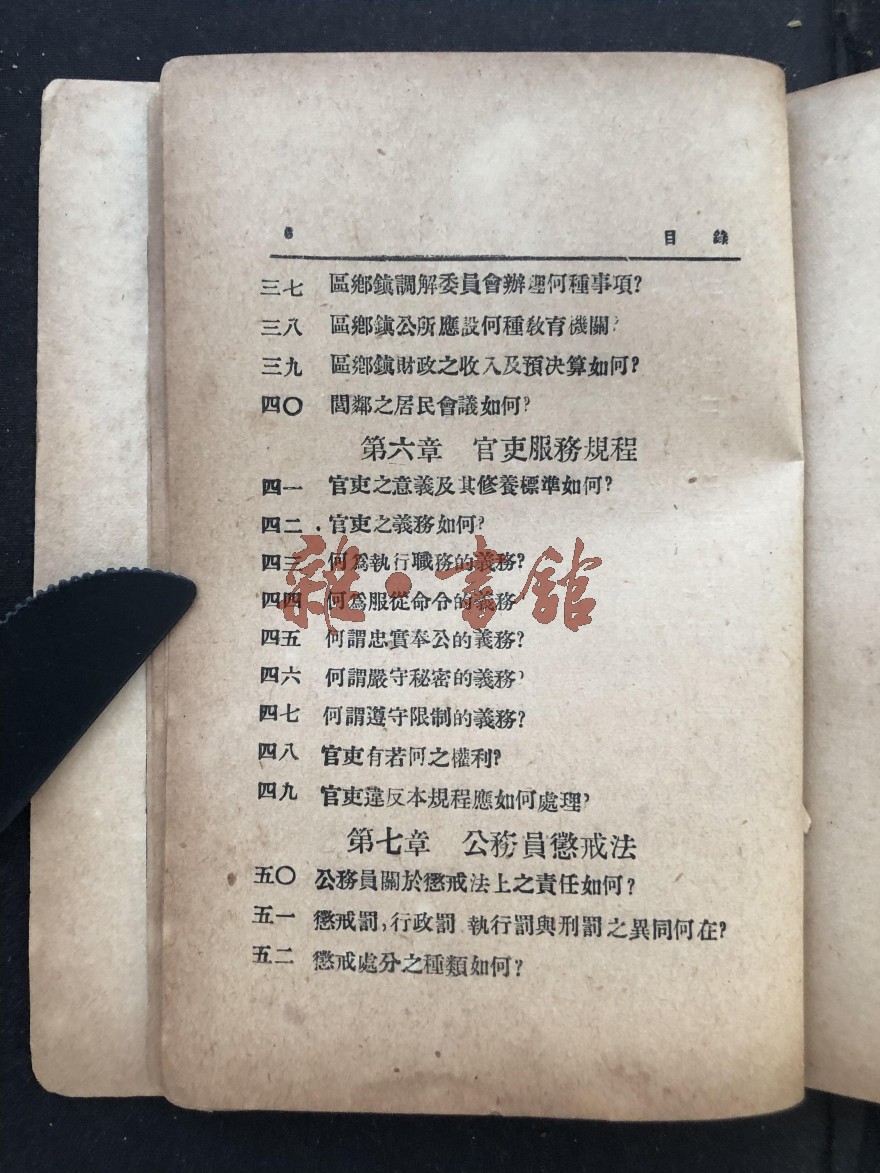 6 目錄
三七 區鄉鎮調解委員會辦理何種事項?
三八 區鄉鎮公所應設何種敎育機關?
三九 區鄉鎮財政之收入及預決算如何?
四〇 閭鄰之居民會議如何?
第六章 官吏服務規程
四一 官吏之意義及其修養標準如何?
四二 官吏之義務如何?
四三 何爲執行職務的義務?
四四 何爲服從命令的義務
四五 何謂忠實奉公的義務?
四六 何謂嚴守秘密的義務?
四七 何謂遵守限制的義務?
四八 官吏有若何之權利?
四九 官吏違反本規程應如何處理?
第七章 公務員懲戒法
五〇 公務員關於懲戒法上之責任如何?
五一 懲戒罰,行政罰 執行罰與刑罰之異同何在?
五二 懲戒處分之種類如何?
雜·書館